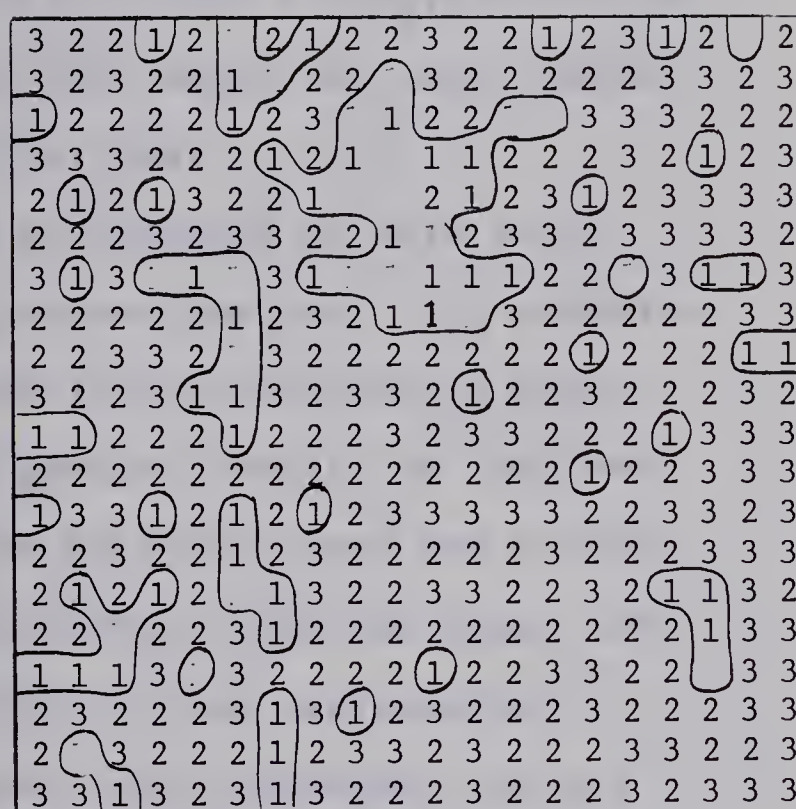 3 2 2 1 2 2 1 2 2 3 2 2 1 2 3 1 2 2
3 2 3 2 2 1 2 2 3 2 2 2 2 2 3 3 2 3
1 2 2 2 2 1 2 3 1 2 2 3 3 3 2 2 2
3 3 3 2 2 2 1 2 1 1 1 2 2 2 3 2 1 2 3
2 1 2 1 3 2 2 1 2 1 2 3 1 2 3 3 3 3
2 2 2 3 2 3 3 2 2 1 2 3 3 2 3 3 3 3 2
3 1 3 1 3 1 1 1 1 2 2 3 1 1 3
2 2 2 2 2 1 2 3 2 1 1 3 2 2 2 2 2 3 3
2 2 3 3 2 3 2 2 2 2 2 2 2 1 2 2 2 1 1
3 2 2 3 1 1 3 2 3 3 2 1 2 2 3 2 2 2 3 2
1 1 2 2 2 1 2 2 2 3 2 3 3 2 2 2 1 3 3 3
2 2 2 2 2 2 2 2 2 2 2 2 2 2 1 2 2 3 3 3
1 3 3 1 2 1 2 1 2 3 3 3 3 3 2 2 3 3 2 3
2 2 3 2 2 1 2 3 2 2 2 2 2 3 2 2 2 3 3 3
2 1 2 1 2 1 3 2 2 3 3 2 2 3 2 1 1 3 2
2 2 2 2 3 1 2 2 2 2 2 2 2 2 2 2 1 3 3
1 1 1 3 3 2 2 2 2 1 2 2 3 3 2 2 3 3
2 3 2 2 2 3 1 3 1 2 3 2 2 2 3 2 2 2 3 3
2 3 2 2 2 1 2 3 3 2 3 2 2 2 3 3 2 2 3
3 3 1 3 2 3 1 3 2 2 2 3 2 2 2 3 2 3 3 3